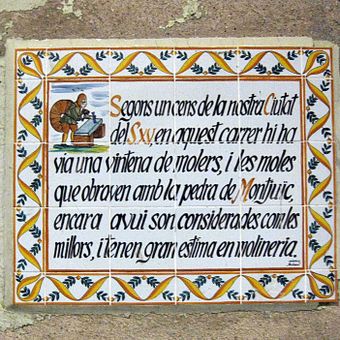 Segons un cens de la nostra Ciutat
del S.xv, en aquest carrer hi ha
via una vintena de molers, i les moles
que obraven amb la pedra de Montjuïc,
encara avui son considerades com les
millors, i tenen gran estima en molineria.